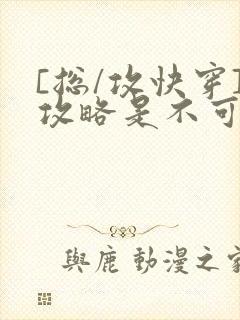 [总/攻快穿]
攻略是不可
與鹿 動漫之家